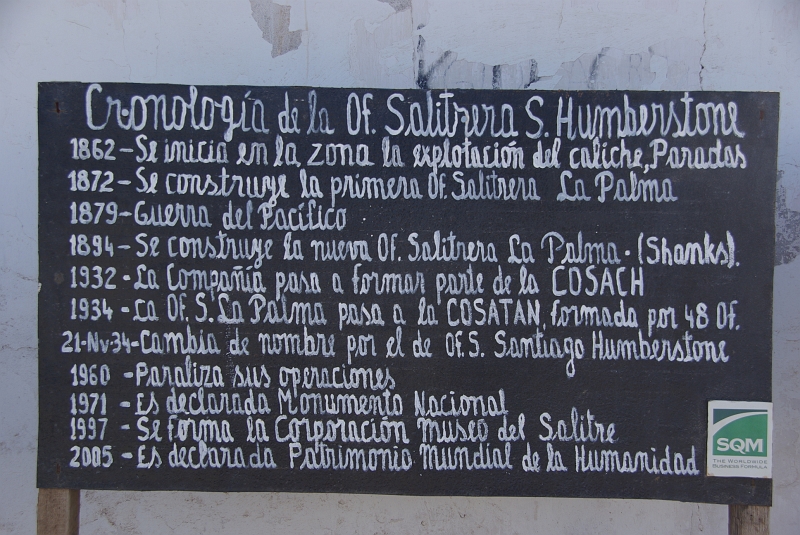 Cronología de la Of. Salitrera S. Humberstone
1862 - Se inicia en la zona la explotación del caliche, Paradas
1872 - Se construye la primera Of. Salitrera La Palma
1879 - Guerra del Pacífico
1894 - Se construye la nueva Of. Salitrera La Palma - (Shanks).
1932 - La Compañía pasa a formar parte de la COSACH
1934 - La Of. S. La Palma pasa a la COSATAN, formada por 48 Of.
21-Nv-34 - Cambia de nombre por el de Of. S. Santiago Humberstone
1960 - Paraliza sus operaciones
1971 - Es declarada Monumento Nacional
1997 - Se forma la Corporación Museo del Salitre
2005 - Es declarada Patrimonio Mundial de la Humanidad
SQM
THE WORLDWIDE
BUSINESS FORMULA